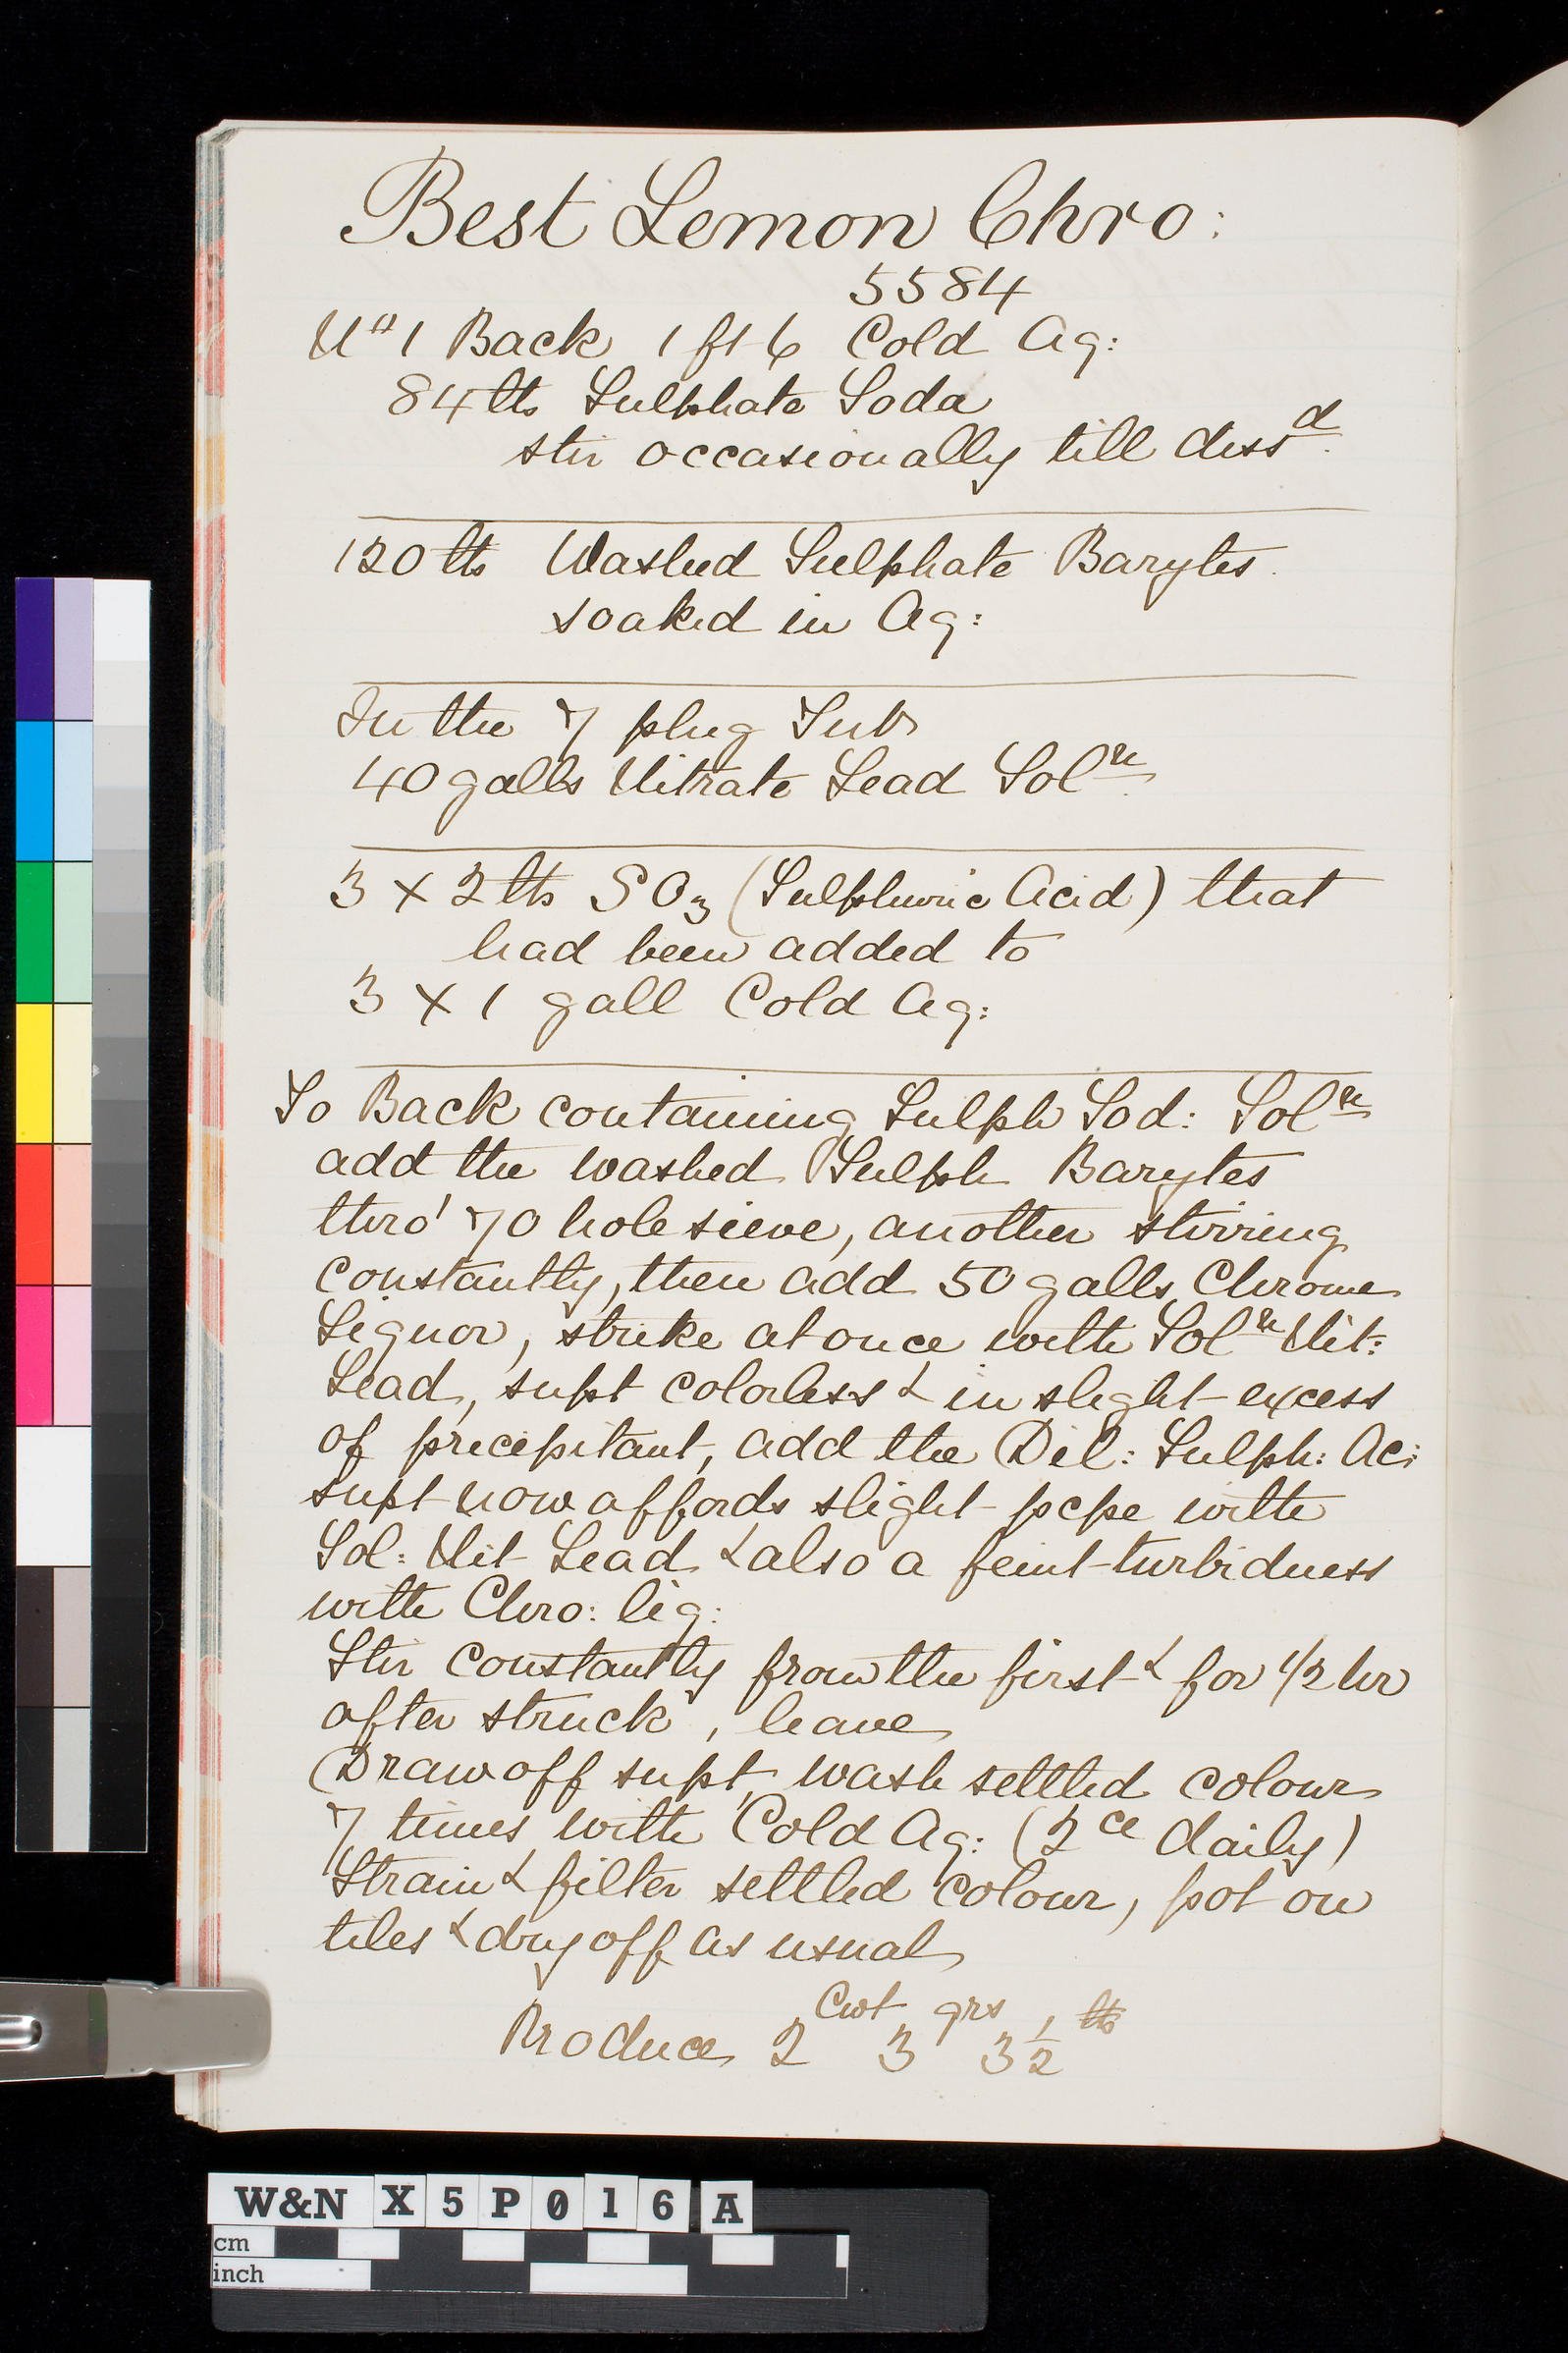 Best Lemon Chro:
5584
No 1 Back 1 ft 6 Cold Aq:
84 lbs Sulphate Soda
stir occasionally till dissd.
120 lbs Washed Sulphate Barytes.
soaked in Aq:
In the 7 plug Tub
40 galls Nitrate Lead Soln
3 x 2 lbs SO3 (Sulphuric Acid) that
had been added to
3 x 1 gall Cold Aq:
To Back containing Sulph Sod: Soln
add the washed Sulph Barytes
thro' 70 hole sieve, another stirring
constantly, then add 50 galls Chrome
Liquor, strike at once with Soln Nit:
Lead, supt colorless & in slight excess
of precipitant, add the Dil: Sulph: Ac:
supt now affords slight pcpe with
Sol: Nit Lead & also a feint turbidness
with Chro: liq:
Stir constantly from the first & for 1/2 hr
after struck, leave
Draw off supt, wash settled colour
7 times with Cold Aq: (2ce daily)
Strain & filter settled colour, pot on
tiles & dry off as usual
Cwt qrs lbs
Produce 2 3 3 1/2
W&N X5P016A
cm
inch